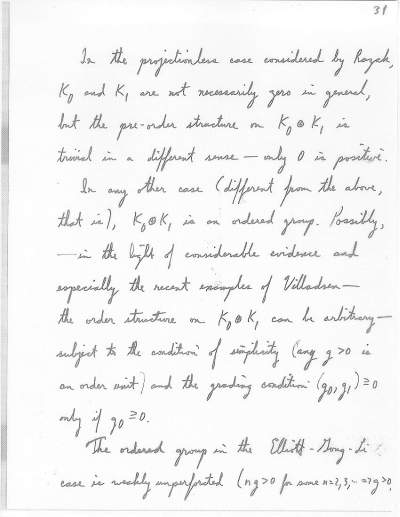 31
In the projectionless case considered by Razak,
K₀ and K₁ are not necessarily zero in general,
but the pre-order structure on K₀ ⊕ K₁ is
trivial in a different sense — only 0 is positive.
In any other case (different from the above,
that is), K₀ ⊕ K₁ is an ordered group. Possibly,
— in the light of considerable evidence and
especially the recent examples of Villadsen —
the order structure on K₀ ⊕ K₁ can be arbitrary —
subject to the condition of simplicity (any g > 0 is
an order unit) and the grading condition (g₀, g₁) ≥ 0
only if g₀ ≥ 0.
The ordered group in the Elliott-Gong-Li
case is weakly unperforated (ng > 0 for some n = 2, 3, ... ⇒ g > 0,